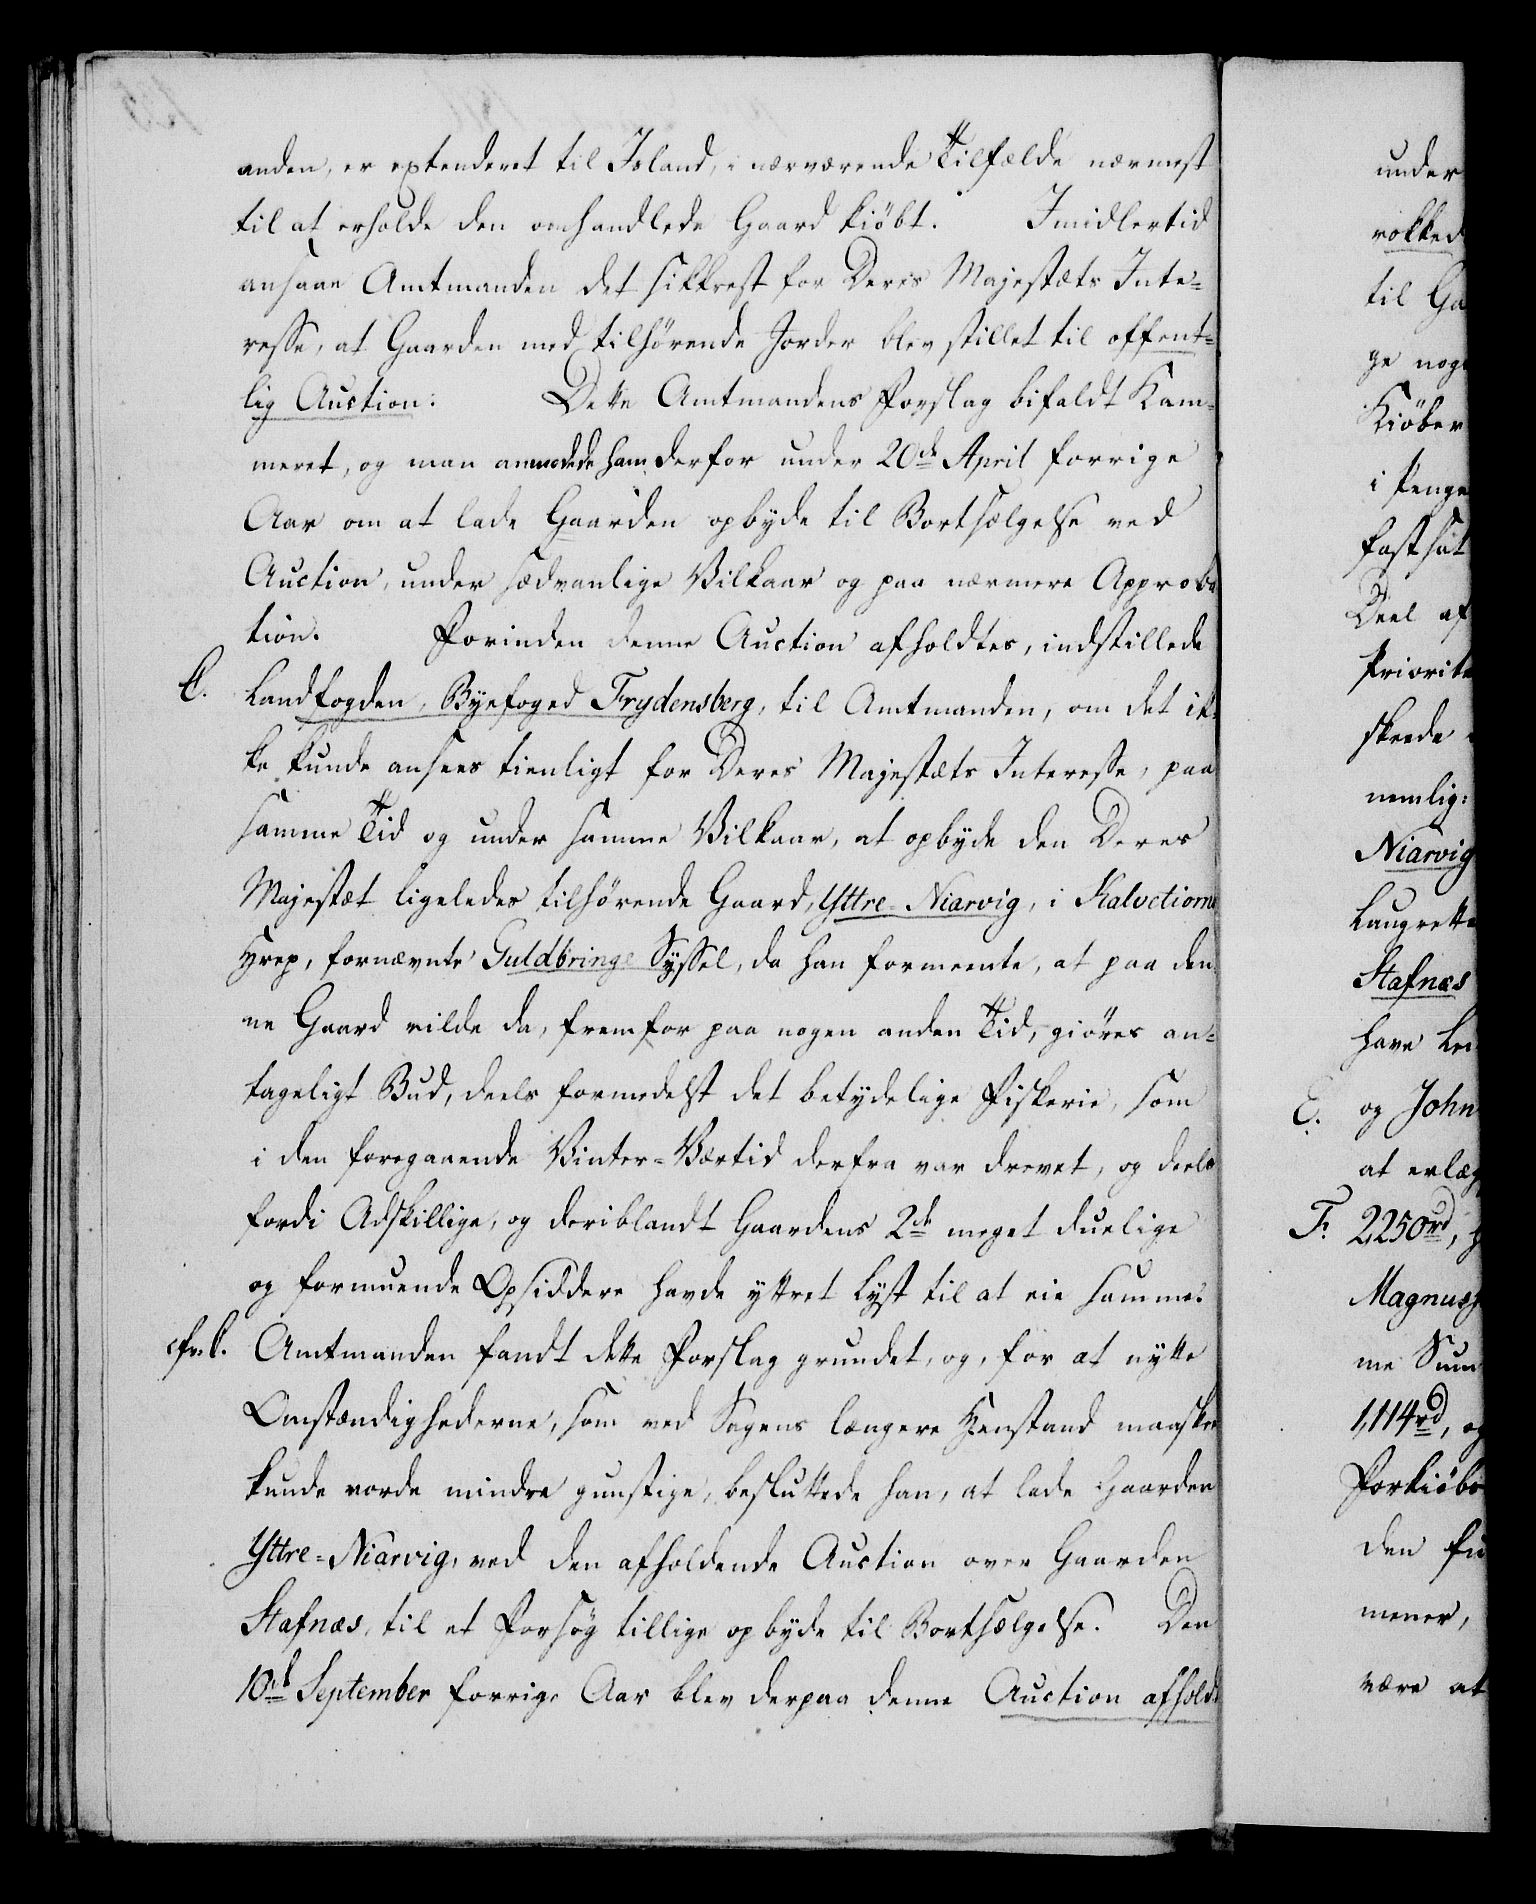 anden, er extenderet til Island, i nærværende Tilfælde nærmest
til at erholde den omhandlede Gaard kiöbt. Imidlertid
ansaae Amtmanden det sikkrest for Deres Majestæts Inte-
resse, at Gaarden med tilhörende Jorder blev stillet til offent-
lig Auction. Dette Amtmandens Forslag bifaldt Kam-
meret, og man anmodede ham derfor under 20de April forrige
Aar om at lade Gaarden opbyde til Bortsælgelse ved
Auction, under sædvanlige Vilkaar og paa nærmere Approba
tion. Forinden denne Auction afholdtes, indstillede
C. Landfogden, Byefoged Frydensberg, til Amtmanden, om det ik-
ke kunde ansees tienligt for Deres Majestæts Interesse, paa
samme Tid og under samme Vilkaar, at opbyde den Deres
Majestæt ligeledes tilhörende Gaard, Yttre-Niarvig, i
Hrep, fornævnte Guldbringe Syssel, da han formeente, at paa den-
ne Gaard vilde da, fremfor paa nogen anden Tid, giöres an-
tageligt Bud, deels formedelst det betydelige Fiskerie, som
i den foregaaende Vinter-Værtid derfra var drevet, og deels
fordi Adskillige, og deriblandt Gaardens 2de meget duelige
og formuende Opsiddere havde yttret Lyst til at eie samme.
cfr. C. Amtmanden fandt dette Forslag grundet, og, for at nytte
Omstændighederne, som ved Sagens længere Henstand maaskee
kunde vorde mindre gunstige, besluttede han, at lade Gaarden
Yttre-Niarvig, ved den afholdende Auction over Gaarden
Stafnæs, til et Forsög tillige opbyde til Bortsælgelse. Den
10de September forrige Aar blev derpaa denne Auction afholdt
under
til Ga
ge nog
Kiöber
i Penge
fastsat
Deel af
Priorite
skeede
nemlig:
Niarvig
Laugrette
Stafnæs
have
E. og John
at erlæg
F. 2,250rd,
Magnus
me Sum
1,114rd, og
Forkiöbs
den
mener,
være at